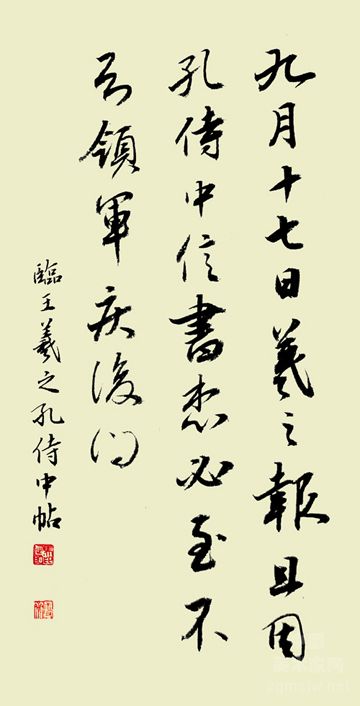 九月十七日羲之報且因
孔侍中信書想必至不
知領軍疾後問
臨王羲之孔侍中帖